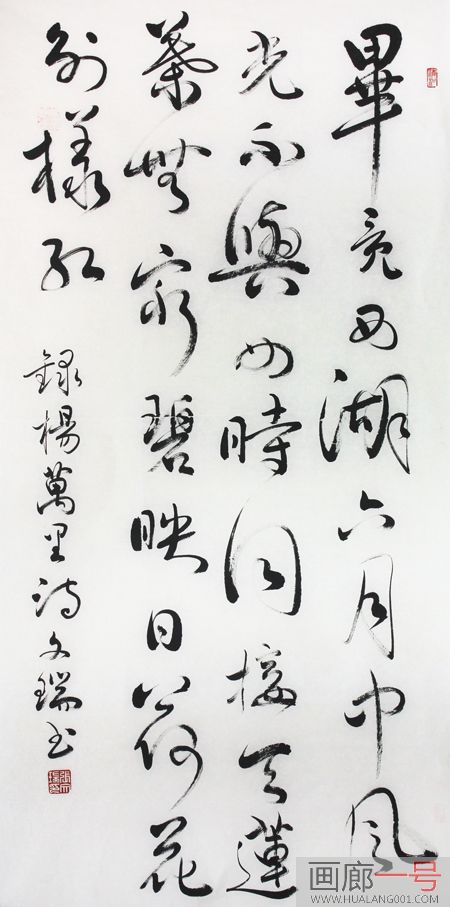 畢竟西湖六月中風
光不與四時同接天蓮
葉無窮碧映日荷花
別樣紅
錄楊萬里詩文瑞书
画廊一号
WWW.HUALANG001.COM